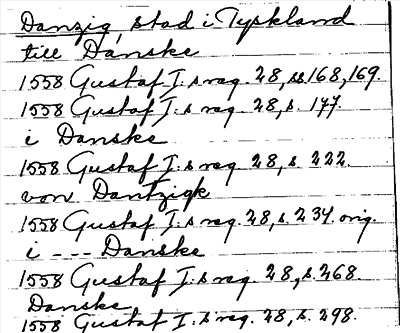 Danzig, stad i Tyskland
till Danske
1558 Gustaf I:s reg. 28, ss. 168, 169.
1558 Gustaf I:s reg. 28, s. 177.
i Danske
1558 Gustaf I:s reg. 28, s. 222.
von Dantzigk
1558 Gustaf I:s reg. 28, s. 234. orig.
i --- Danske
1558 Gustaf I:s reg. 28, s. 268.
Danske
1558 Gustaf I:s reg. 28, s. 298.